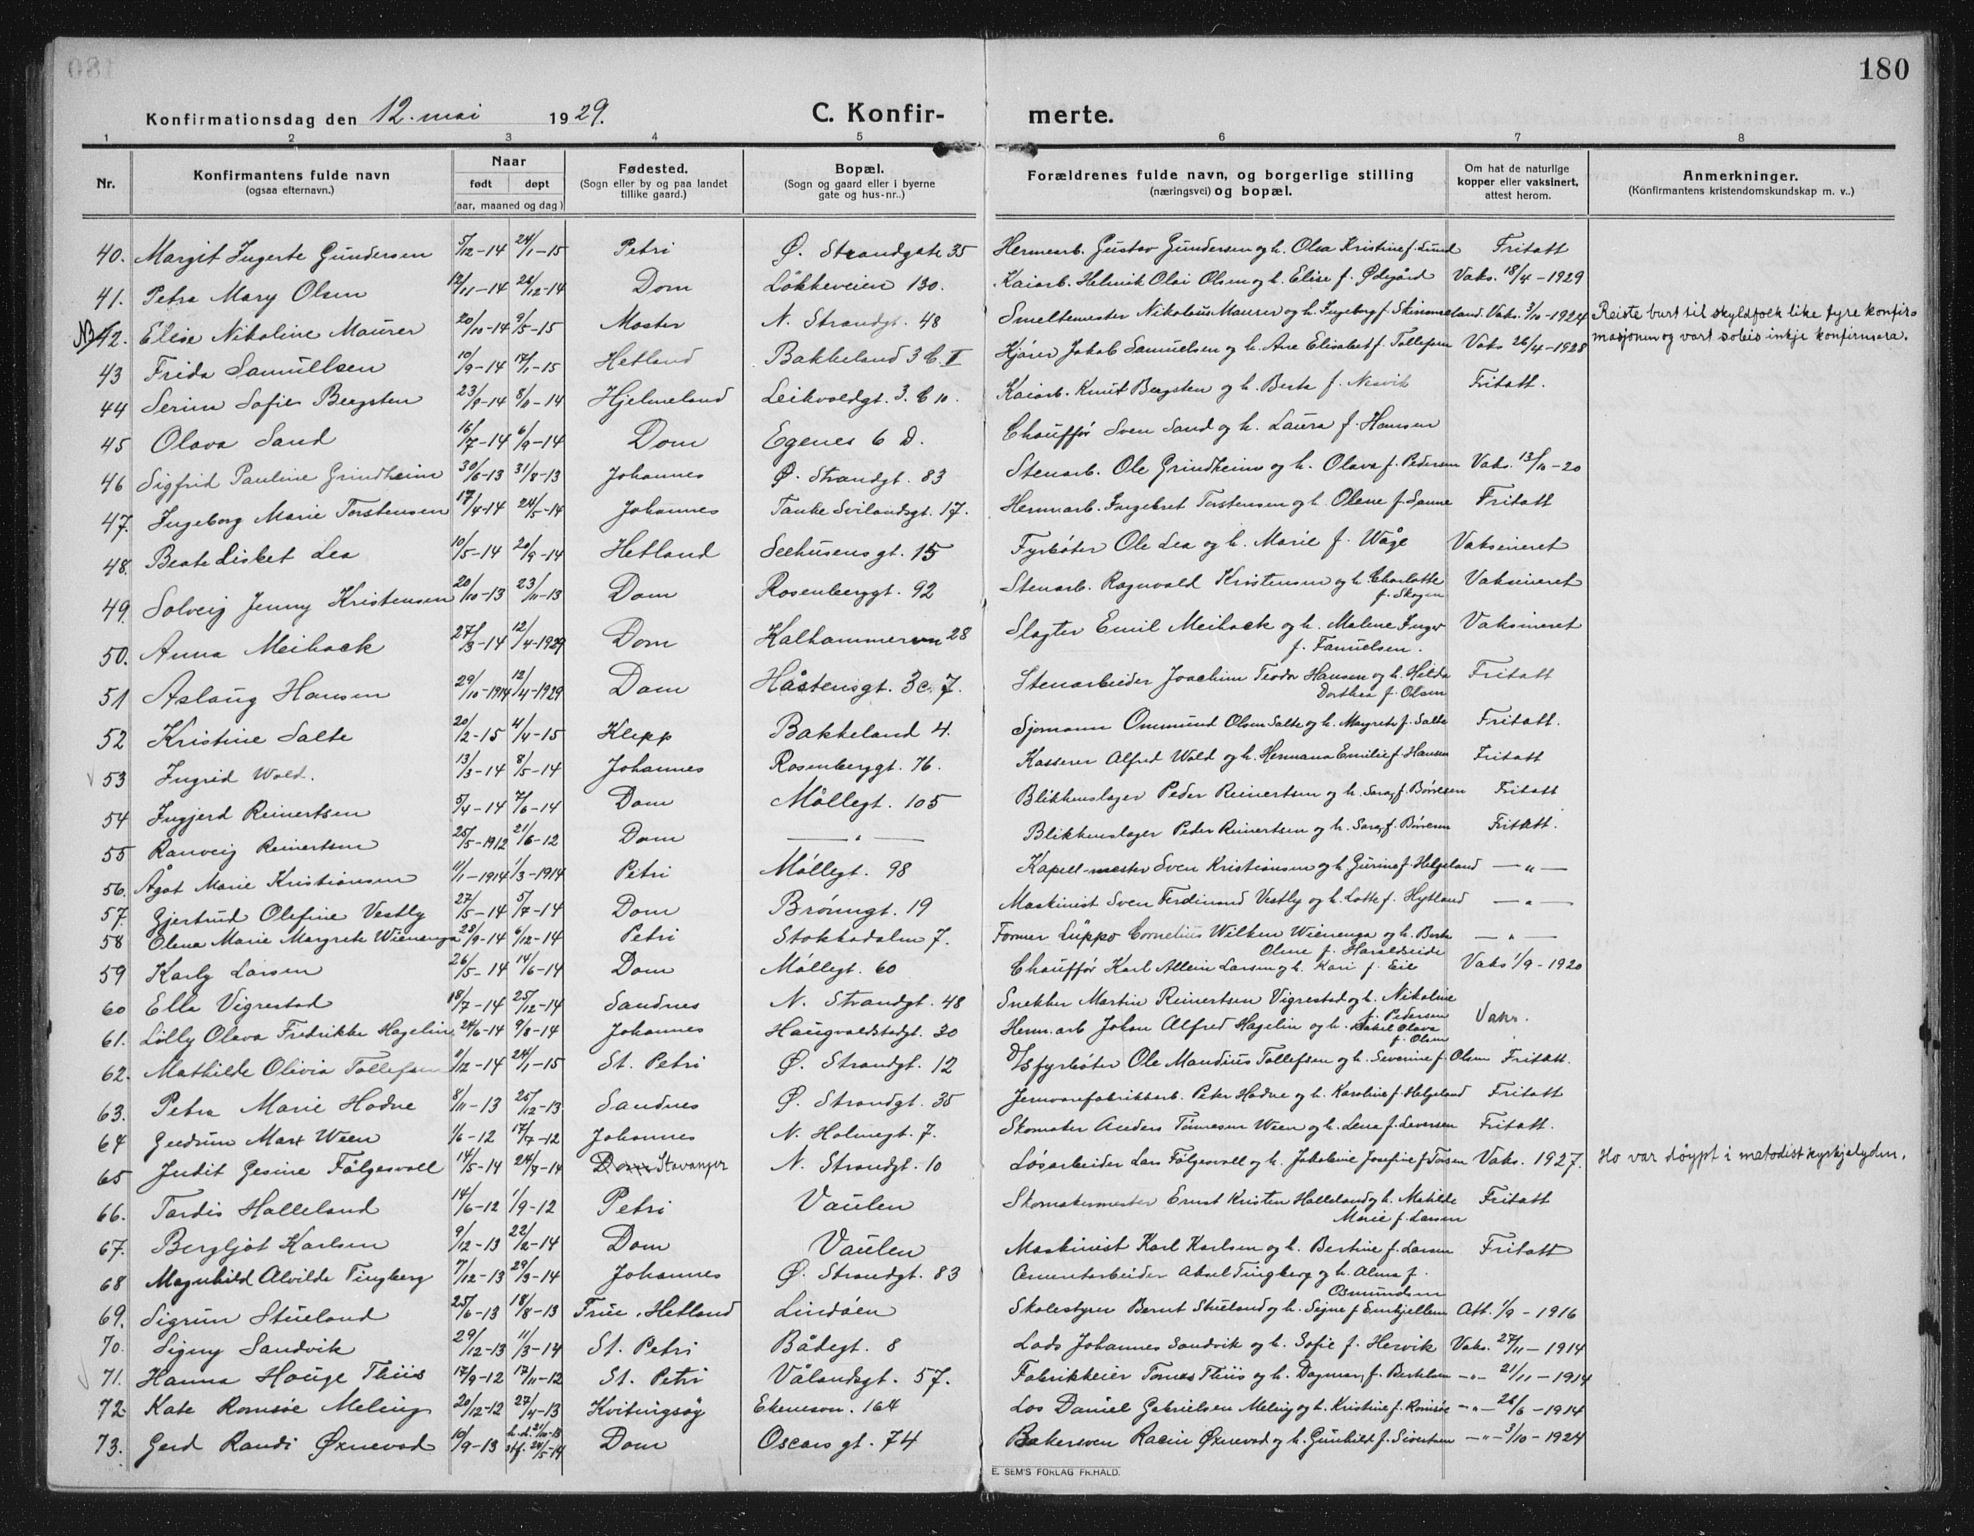 180
Konfirmationsdag den 12. mai 1929. C. Konfirmerte.
1 2 3 4 5 6 7 8
Nr. Konfirmantens fulde navn (ogsaa efternavn.) Naar født døpt (aar, maaned og dag) Fødested. (Sogn eller by og paa landet tillike gaard.) Bopæl. (Sogn og gaard eller i byerne gate og hus-nr..) Forældrenes fulde navn, og borgerlige stilling (næringsvei) og bopæl. Om hat de naturlige kopper eller vaksinert, attest herom. Anmerkninger. (Konfirmantens kristendomskundskap m. v..)
40. Margit Ingerte Gundersen 5/12-14 24/1-15 Petri Ø. Strandgate 35 Hermarb. Gustav Gundersen og h. Olea Kristine f. Lund Fritatt
41. Petra Mary Olsen 12/11-14 26/12-14 Dom Løkkeveien 130. Kaiarb. Helmik Olai Olsen og h. Elise f. Ødegård Vaks. 18/4-1929
NB 42. Elise Nikoline Maurer 20/10-14 9/5-15 Moster N. Strandgt. 48 Smeltemester Nikolaus Maurer og h. Ingeborg f. Stimmeland. Vaks. 3/10-1924 Reiste burt til skyldfolk like fyre konfirmasjonen og vart soleis inkje konfirmera.
43 Frida Samuelsen 10/9-14 17/1-15 Hetland Bakkeland 3 b. II Hjører Jakob Samuelsen og h. Ane Elisabet f. Tollefsen Vaks 26/4-1928
44 Serine Sofie Bergsten 23/9-14 8/11-14 Hjelmeland Leikvoldgt. 3. b 10. Kaiarb. Knut Bergsten og h. Berta f. Nesvik Fritatt.
45 Olava Sand 16/7-14 6/9-14 Dom Egenes 6 D. Chauffør Sven Sand og h. Laura f. Hansen
46 Sigfrid Pauline Grindheim 30/6-13 31/8-13 Johannes Ø. Strandgt. 83 Stenarb. Ole Grindheim og h. Olava f. Pedersen Vaks. 13/11-20
47. Ingeborg Marie Torstensen 17/4-14 24/5-14 Johannes Tanke Svilandsgt. 17. Hermarb. Ingebret Torstensen og h. Olene f. Sanne Fritatt
48. Beate Lisket Lea 10/5-14 20/9-14 Hetland Seehusensgt. 15 Fyrbøter Ole Lea og h. Marie f. Wåge Vaksineret
49. Solveig Jenny Kristensen 20/10-13 23/11-13 Dom Rosenberggt. 92 Stenarb. Ragnvald Kristensen og h Charlotte f. Skogen Vaksineret
50. Anna Meihack 27/3-14 12/4-1929 Dom Kalhammervn 28 Slagter Emil Meihack og h. Malene Inger f. Samuelsen. Vaksineret
51 Aslaug Hansen 29/10-1914 12/4-1929 Dom Håsteinsgt. 3c. 7. Stenarbeider Joachim Teodor Hansen og h. Hilda Dorthea f. Olsen Fritatt
52 Kristine Salte 20/2-15 4/4-15 Klepp Bakkeland 4. Sjømann Ommund Olsen Salte og h. Margrete f. Salte Fritatt.
53 Ingrid Wold. 13/3-14 8/5-14 Johannes Rosenberggt. 76. Kasserer Alfred Wold og h. Hermana Emilie f. Hansen Fritatt
54 Ingjerd Reinertsen 5/4-14 7/6-14 Dom Møllegt. 105 Blikkenslager Peder Reinertsen og h. Sara f. Børresen Fritatt
55 Ranveig Reinertsen 25/5-1912 21/6-12 Dom — " — Blikkenslager Peder Reinertsen og h. Sara f. Børresen Fritatt.
56. Ågot Marie Kristiansen 11/1-1914 1/3-1914 Petri Møllegt. 98 Kapellmester Sven Kristiansen og h. Gurine f. Helgeland — " —
57. Gjertrud Olefine Vestly 27/5-14 5/7-14 Dom Brønngt. 19 Maskinist Sven Ferdinand Vestly og h. Lotte f. Hytland — " —
58 Olena Marie Margrete Wienenga 28/9-14 6/12-14 Petri Stokkadalen 7. Former Lüppo Cornelius Wilken Wienenga og h. Berta Oline f. Haraldseide — " —
59 Karly Larsen 26/5-14 14/6-14 Dom Møllegt. 60 Chauffør Karl Allein Larsen og h. Kari f. Eie Vaks 1/9-1920
60 Ella Vigrestad 18/7-14 25/12-14 Sandnes N. Strandgt. 48 Snekker Martin Reinertsen Vigrestad og h. Nikoline f. Pedersen Vaks.
61. Lølly Olava Fredrikke Hagelin 24/6-14 9/8-14 Johannes Haugvaldstadgt. 30 Herm.arb Johan Alfred Hagelin og h. Olava f. Olsen
62. Mathilde Olivia Tollefsen 8/12-14 24/1-15 St. Petri Ø. Strandgt. 12 D/S fyrbøter Ole Mandius Tollefsen og h. Severine f. Olsen Fritatt.
63. Petra Marie Hodne 8/11-13 25/12-13 Sandnes Ø. Strandgt. 35 Jernvarefabrikkarb. Peter Hodne og h. Karoline f. Helgeland Fritatt
64 Gudrun Marx Ween 1/6-12 17/7-12 Johannes N. Holmegt. 7. Skomaker Anders Tønnesen Ween og h. Lena f. Iversen Fritatt.
65 Judit Gesine Følgesvoll 14/5-14 24/7-14 Dom Stavanger N. Strandgt. 10 Løsarbeider Lars Følgesvoll og h. Jakobine Josefine f. Torsen Vaks. 1927. Ho var døypt i metodistkyrkjelyden.
66. Tordis Halleland 14/6-12 1/9-12 Petri Vaulen Skomakermester Ernst Kristen Halleland og h. Matilde Marie f. Larsen Fritatt
67. Bergljot Karlsen 9/12-13 22/2-14 Dom Vaulen Maskinist Karl Karlsen og h. Bertine f. Larsen Fritatt
68 Magnhild Alvilde Tingberg 7/12-13 29/3-14 Johannes Ø. Strandgt. 83 Cementarbeider Aksel Tingberg og h. Alma f. Osmundsen
69. Sigrun Stueland 25/6-13 18/8-13 Frue, Hetland Lindøen Skolestyrer Bernt Stueland og h. Signe f. Emkjellen Att. 1/9-1916
70. Signy Sandvik 29/12-13 11/3-14 St. Petri Bådegt. 8 Lods Johannes Sandvik og h. Sofie f. Hervik Vaks. 27/11-1914
71. Hanna Houge Thiis 17/9-12 17/11-12 St. Petri Vålandsgt. 57. Fabrikkeier Tomas Thiis og h. Dagmar f. Bertelsen -"- 21/11-1914
72. Kate Romsøe Meling 20/12-12 27/4-13 Kvitingsøy Ekeneson. 164 Los Daniel Gabrielsen Meling og h. Kristine f. Romsøe -"- 26/6-1914
73. Gerd Randi Øxnevad 10/9-13 h.d. 21/10-13 stf. 24/5-14 Dom Oscarsgt. 74 Bakersven Racin Øxnevad og h. Gunhild f. Sivertsen -"- 3/10-1924
E. SEM'S FORLAG FR.HALD.